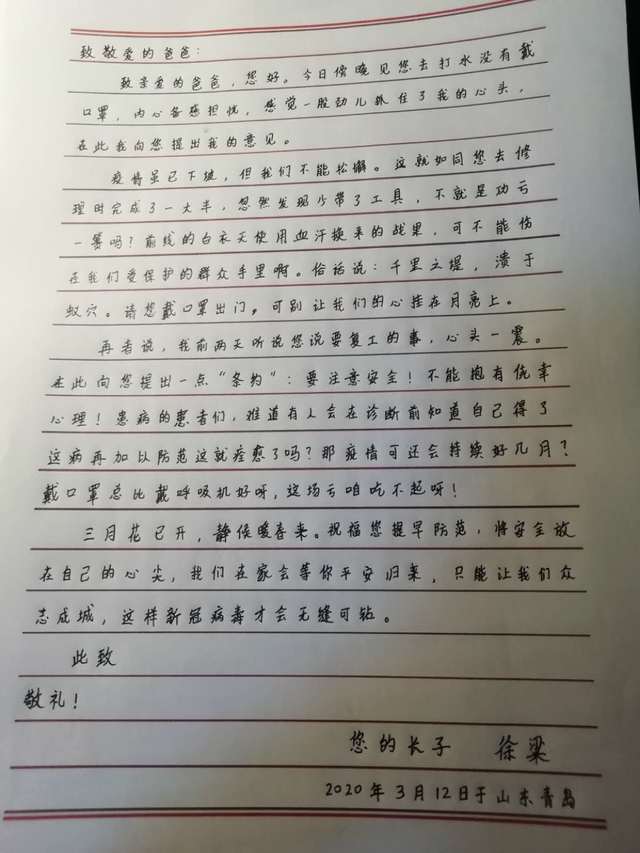 致敬爱的爸爸：
致亲爱的爸爸，您好。今日傍晚见您去打水没有戴
口罩，内心备感担忧，感觉一股劲儿抓住了我的心头，
在此我向您提出我的意见。
疫情虽已下坡，但我们不能松懈。这就如同您去修
理时完成了一大半，忽然发现少带了工具，不就是功亏
一篑吗？前线的白衣天使用血汗换来的战果，可不能伤
在我们受保护的群众手里啊。俗话说：千里之堤，溃于
蚁穴。请您戴口罩出门，可别让我们的心挂在月亮上。
再者说，我前两天听说您说要复工的事，心头一震。
在此向您提出一点“条约”：要注意安全！不能抱有侥幸
心理！患病的患者们，难道有人会在诊断前知道自己得了
这病再加以防范这就痊愈了吗？那疫情可还会持续好几月？
戴口罩总比戴呼吸机好呀，这场亏咱吃不起呀！
三月花已开，静候暖春来。祝福您提早防范，将安全放
在自己的心尖，我们在家会等你平安归来，只能让我们众
志成城，这样新冠病毒才会无缝可钻。
此致
敬礼！
您的长子 徐梁
2020年3月12日于山东青岛